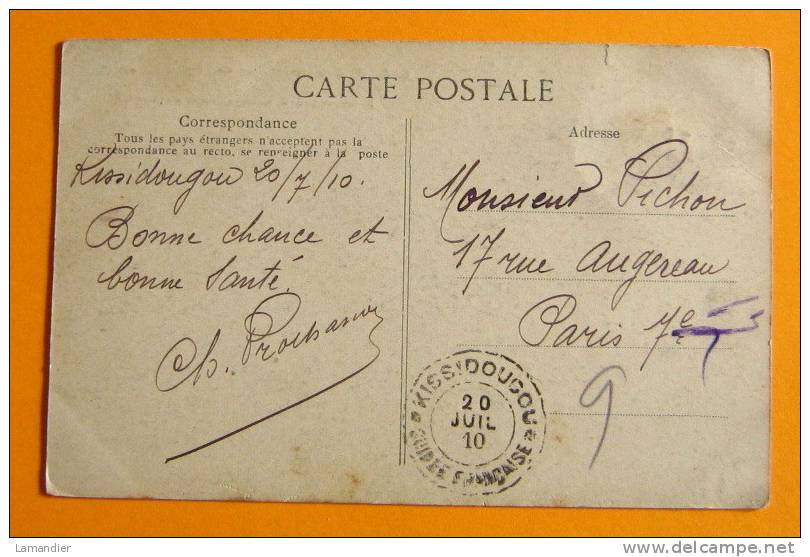 CARTE POSTALE
Correspondance
Tous les pays étrangers n'acceptent pas la
correspondance au recto, se renseigner à la poste
Kissidougou 20/7/10.
Bonne chance et
bonne Santé.
Ch.
Adresse
Monsieur Pichon
17 rue Augereau
Paris 7e
9
KISSIDOUGOU
20
JUIL
10
GUINÉE FRANÇAISE
Lamandier
http://www.delcampe.net